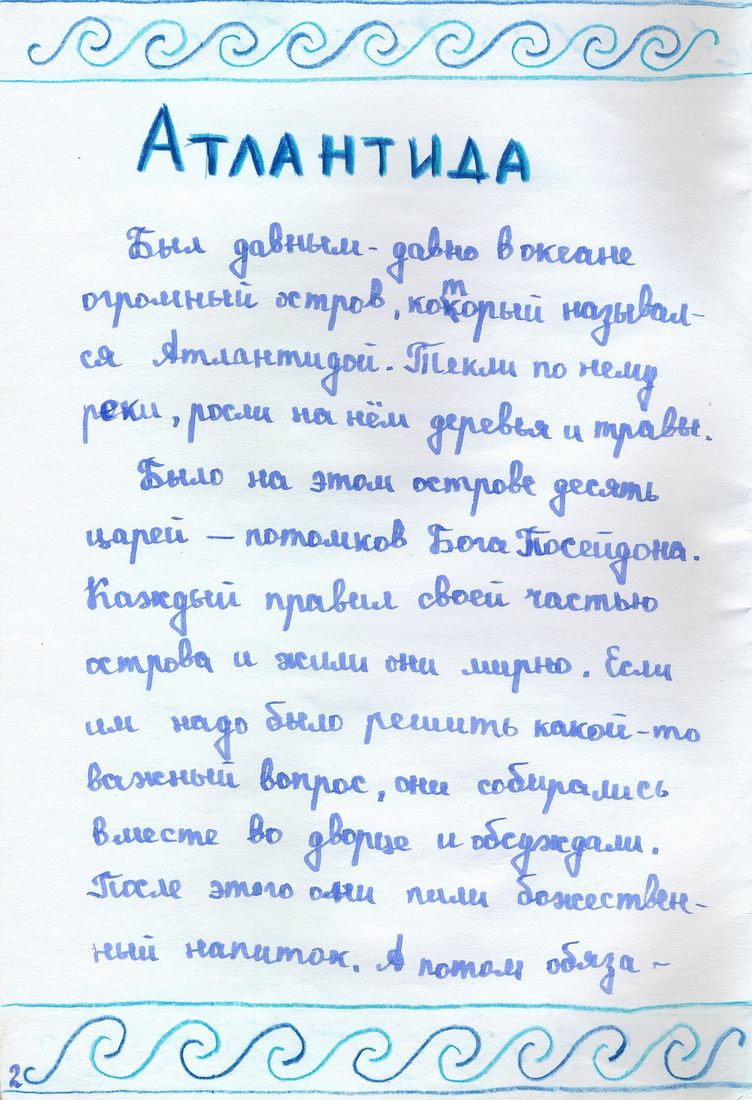 Атлантида
Был давным-давно в океане
огромный остров, который называл-
ся Атлантидой. Текли по нему
реки, росли на нём деревья и травы.
Было на этом острове десять
царей — потомков Бога Посейдона.
Каждый правил своей частью
острова и жили они мирно. Если
им надо было решить какой-то
важный вопрос, они собирались
вместе во дворце и обсуждали.
После этого они пили божествен-
ный напиток. А потом обяза-
2